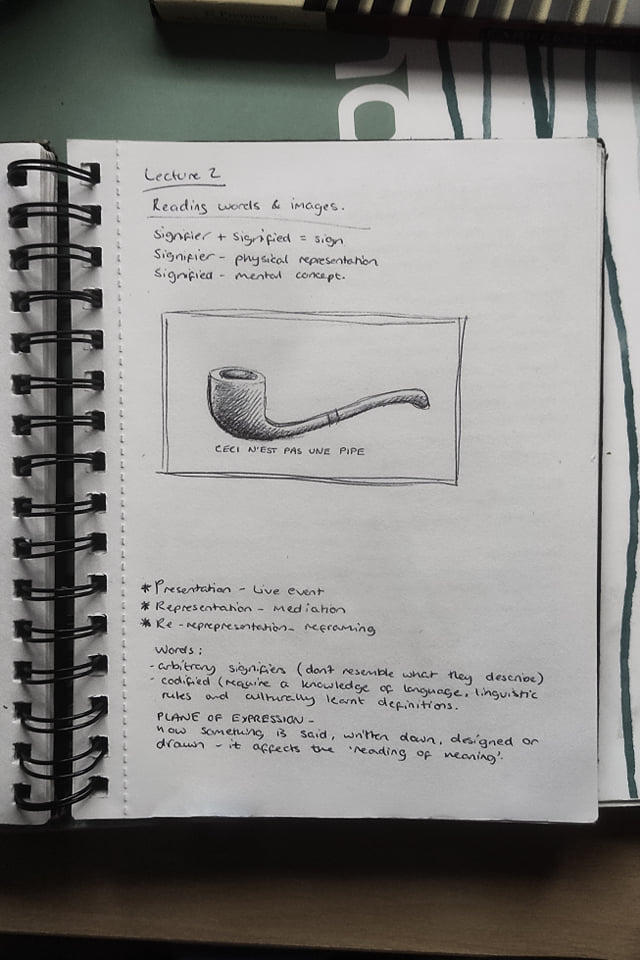 Lecture 2
Reading words & images.
Signifier + Signified = sign
Signifier - physical representation
Signified - mental concept.
CECI N'EST PAS UNE PIPE
* Presentation - Live event
* Representation - Mediation
* Re-reprepresentation - reframing
Words:
- arbitrary signifiers (don't resemble what they describe)
- codified (require a knowledge of language, linguistic
rules and culturally learnt definitions.
PLANE OF EXPRESSION -
how something is said, written down, designed or
drawn - it affects the 'reading of meaning'.